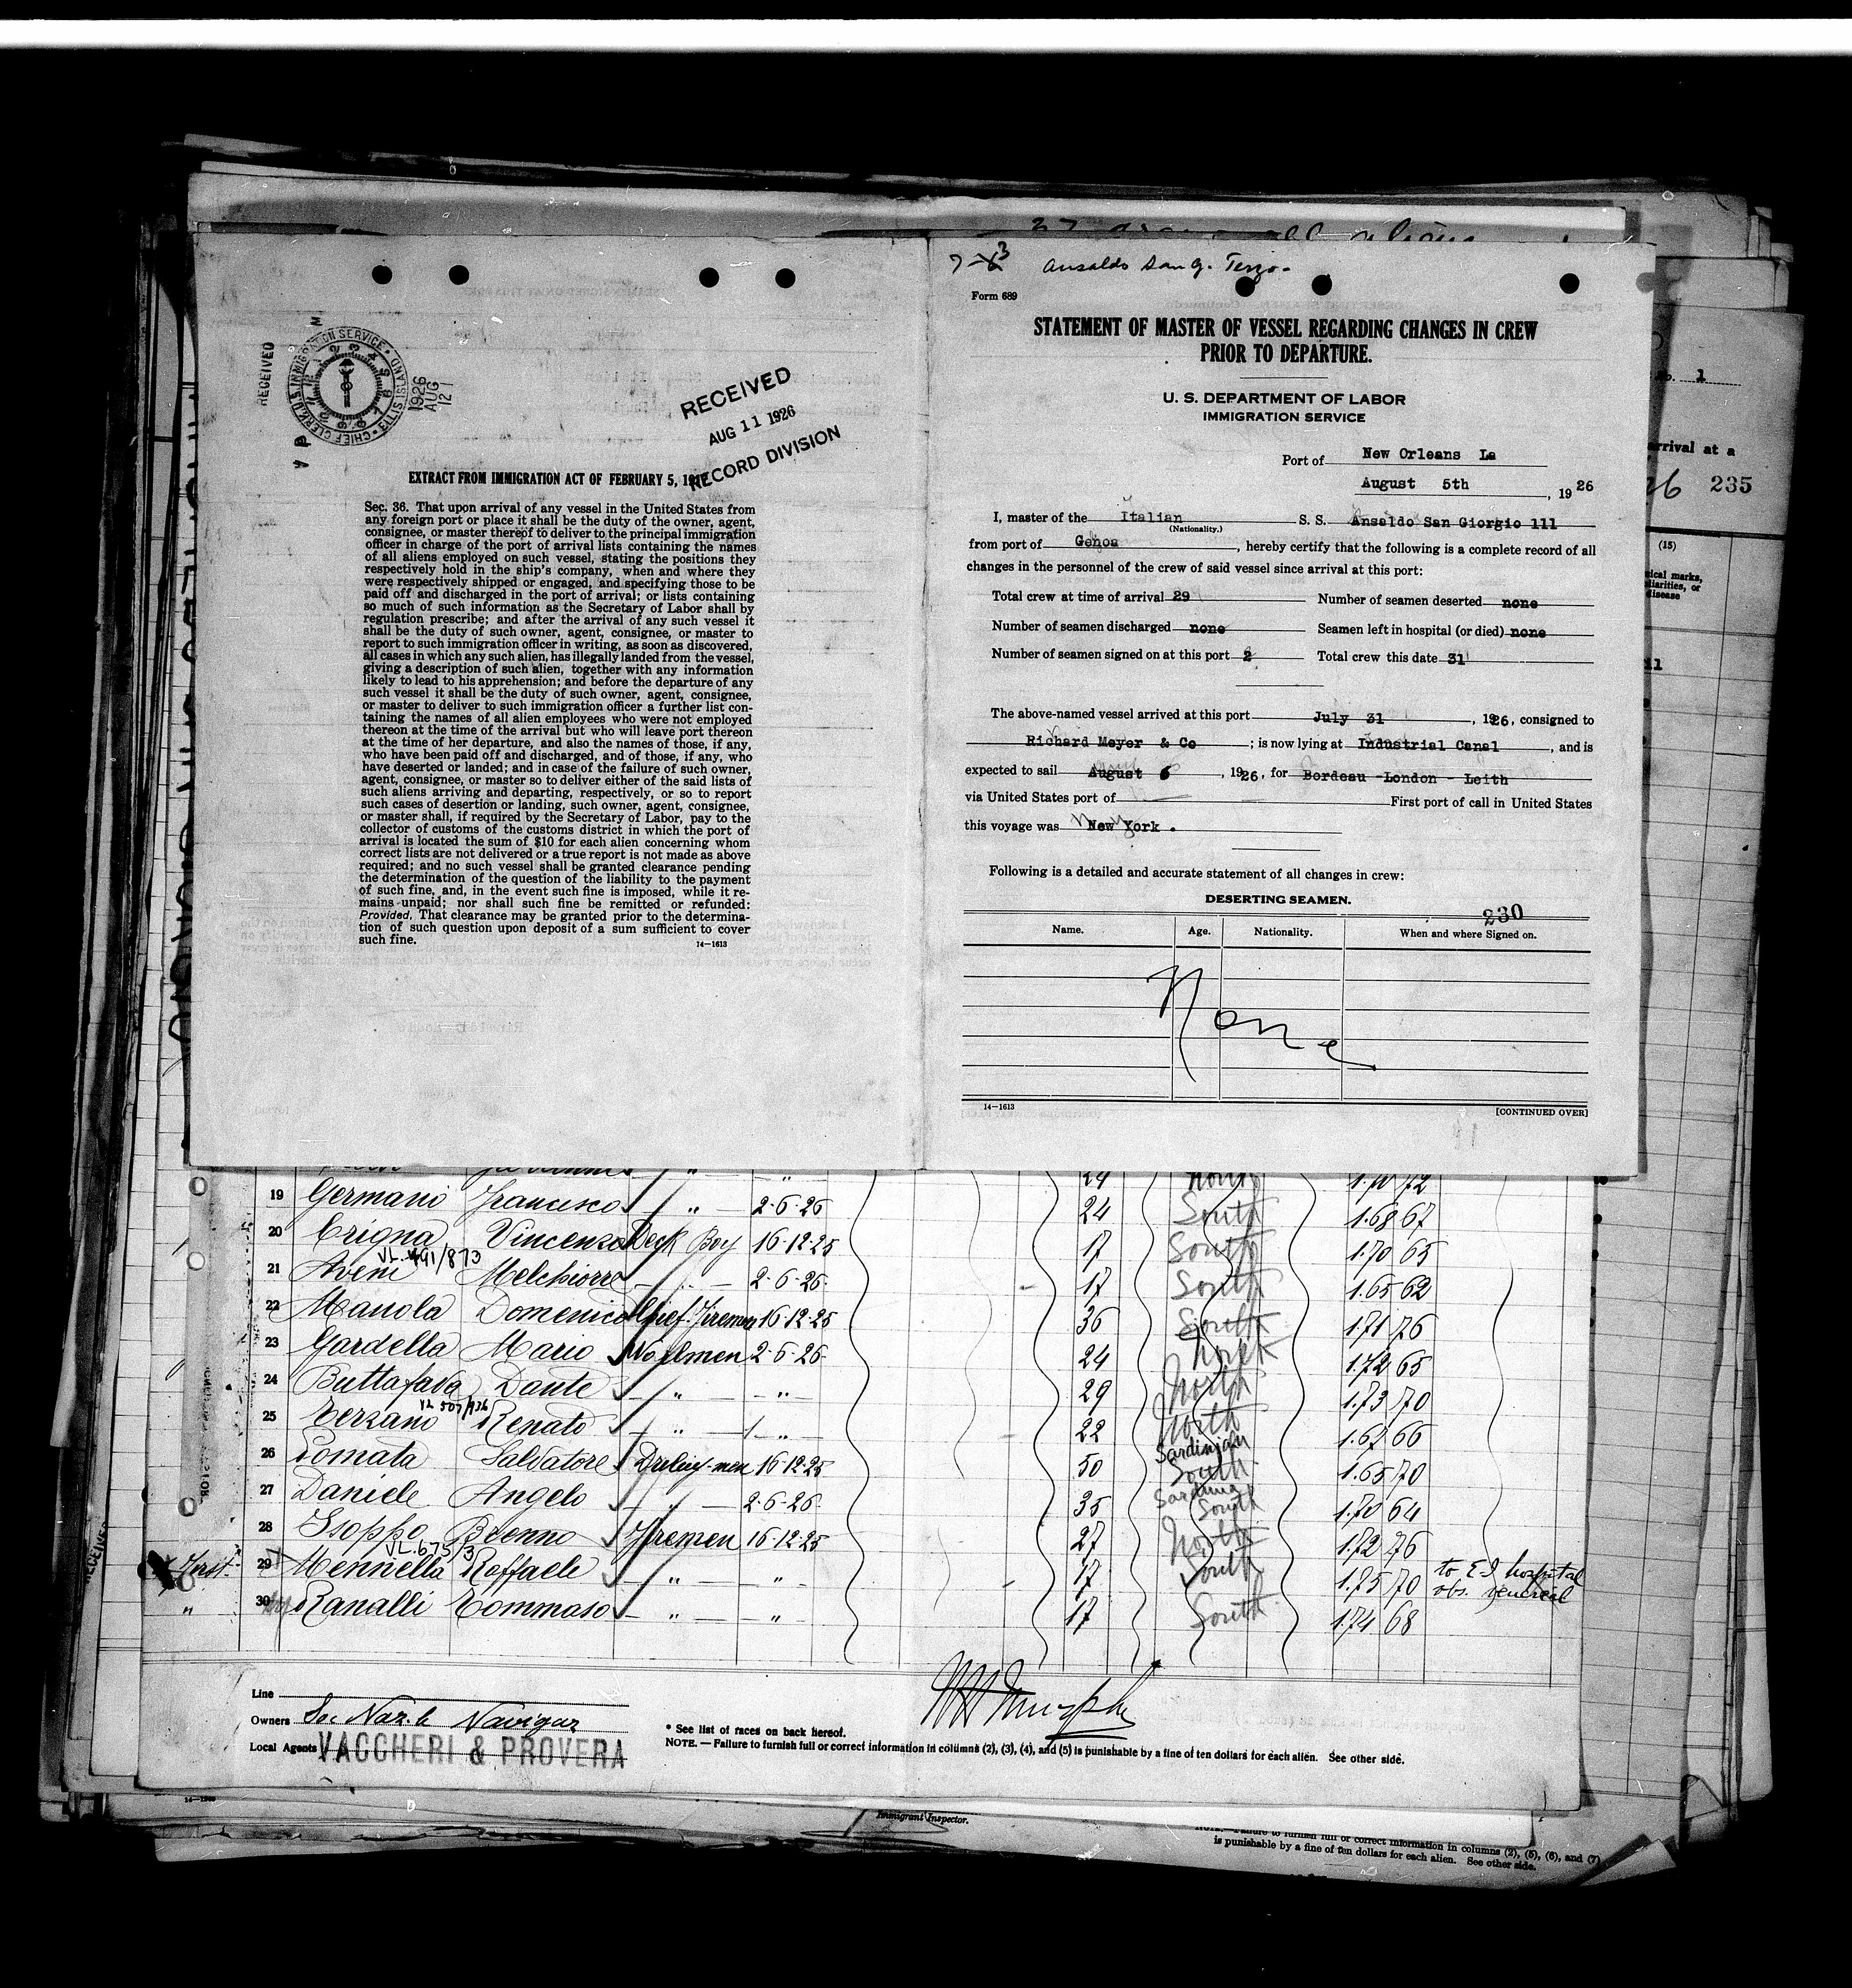 RECEIVED
CHIEF CLERK U.S. IMMIGRATION SERVICE
ELLIS ISLAND
1926
AUG
12
RECEIVED
AUG 11 1926
RECORD DIVISION
EXTRACT FROM IMMIGRATION ACT OF FEBRUARY 5,
Sec. 36. That upon arrival of any vessel in the United States from
any foreign port or place it shall be the duty of the owner, agent,
consignee, or master thereof to deliver to the principal immigration
officer in charge of the port of arrival lists containing the names
of all aliens employed on such vessel, stating the positions they
respectively hold in the ship's company, when and where they
were respectively shipped or engaged, and specifying those to be
paid off and discharged in the port of arrival; or lists containing
so much of such information as the Secretary of Labor shall by
regulation prescribe; and after the arrival of any such vessel it
shall be the duty of such owner, agent, consignee, or master to
report to such immigration officer in writing, as soon as discovered,
all cases in which any such alien, has illegally landed from the vessel,
giving a description of such alien, together with any information
likely to lead to his apprehension; and before the departure of any
such vessel it shall be the duty of such owner, agent, consignee,
or master to deliver to such immigration officer a further list con-
taining the names of all alien employees who were not employed
thereon at the time of the arrival but who will leave port thereon
at the time of her departure, and also the names of those, if any,
who have been paid off and discharged, and of those, if any, who
have deserted or landed; and in case of the failure of such owner,
agent, consignee, or master so to deliver either of the said lists of
such aliens arriving and departing, respectively, or so to report
such cases of desertion or landing, such owner, agent, consignee,
or master shall, if required by the Secretary of Labor, pay to the
collector of customs of the customs district in which the port of
arrival is located the sum of $10 for each alien concerning whom
correct lists are not delivered or a true report is not made as above
required; and no such vessel shall be granted clearance pending
the determination of the question of the liability to the payment
of such fine, and, in the event such fine is imposed, while it re-
mains unpaid; nor shall such fine be remitted or refunded:
Provided, That clearance may be granted prior to the determina-
tion of such question upon deposit of a sum sufficient to cover
such fine.
14—1613
Ansaldo San G. Terzo.
Form 689
STATEMENT OF MASTER OF VESSEL REGARDING CHANGES IN CREW
PRIOR TO DEPARTURE.
U. S. DEPARTMENT OF LABOR
IMMIGRATION SERVICE
Port of New Orleans La
August 5th, 1926
I, master of the Italian S. S. Ansaldo San Giorgio 111
(Nationality.)
from port of Genoa, hereby certify that the following is a complete record of all
changes in the personnel of the crew of said vessel since arrival at this port:
Total crew at time of arrival 29 Number of seamen deserted none
Number of seamen discharged none Seamen left in hospital (or died) none
Number of seamen signed on at this port 2 Total crew this date 31
The above-named vessel arrived at this port July 31, 1926, consigned to
Richard Meyer & Co; is now lying at Industrial Canal, and is
expected to sail August 6, 1926, for Bordeau -London - Leith
via United States port of — First port of call in United States
this voyage was New York .
Following is a detailed and accurate statement of all changes in crew:
DESERTING SEAMEN.
230
Name. Age. Nationality. When and where Signed on.
None
14—1613 [CONTINUED OVER]
No. 1
arrival at a
26 235
(15)
24 North 1.70 72
19 Germano Francesco " 2-6-26 24 South 1.68 67
20 Crigna Vincenzo Deck Boy 16-12-25 17 South 1.70 65
VL 491/873
21 Aveni Melchiorre " 2-6-26 17 South 1.65 62
22 Manola Domenico Chief Firemen 16-12-25 36 South 1.71 76
23 Gardella Mario 2-6-26 24 North 1.72 65
24 Buttafava Dante " " 29 North 1.73 70
VL 507/936
25 Terzano Renato " " 22 North 1.67 66
Sardinian
26 Pomata Salvatore 16-12-25 50 South 1.65 70
27 Daniele Angelo " 2-6-26 35 South 1.70 64
28 Isoppo Brenno Firemen 16-12-25 27 North 1.72 76
VL 675/3
29 Mennella Raffaele " " 17 South 1.75 70 to E-I hospital
obs. venereal
30 Ranalli Tommaso " " 17 South 1.74 68
Line
Owners Soc Naz. le Navigaz
Local Agents VACCHERI & PROVERA
* See list of races on back hereof.
NOTE. — Failure to furnish full or correct information in columns (2), (3), (4), and (5) is punishable by a fine of ten dollars for each alien. See other side.
Immigrant Inspector.
NOTE.—Failure to furnish full or correct information in columns (2), (5), (6), and (7)
is punishable by a fine of ten dollars for each alien. See other side.